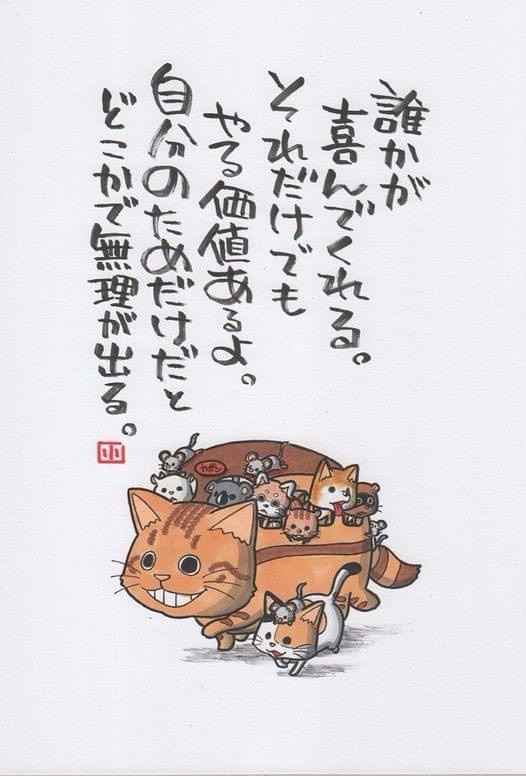 誰かが
喜んでくれる。
それだけでも
やる価値あるよ。
自分のためだけだと
どこかで無理が出る。